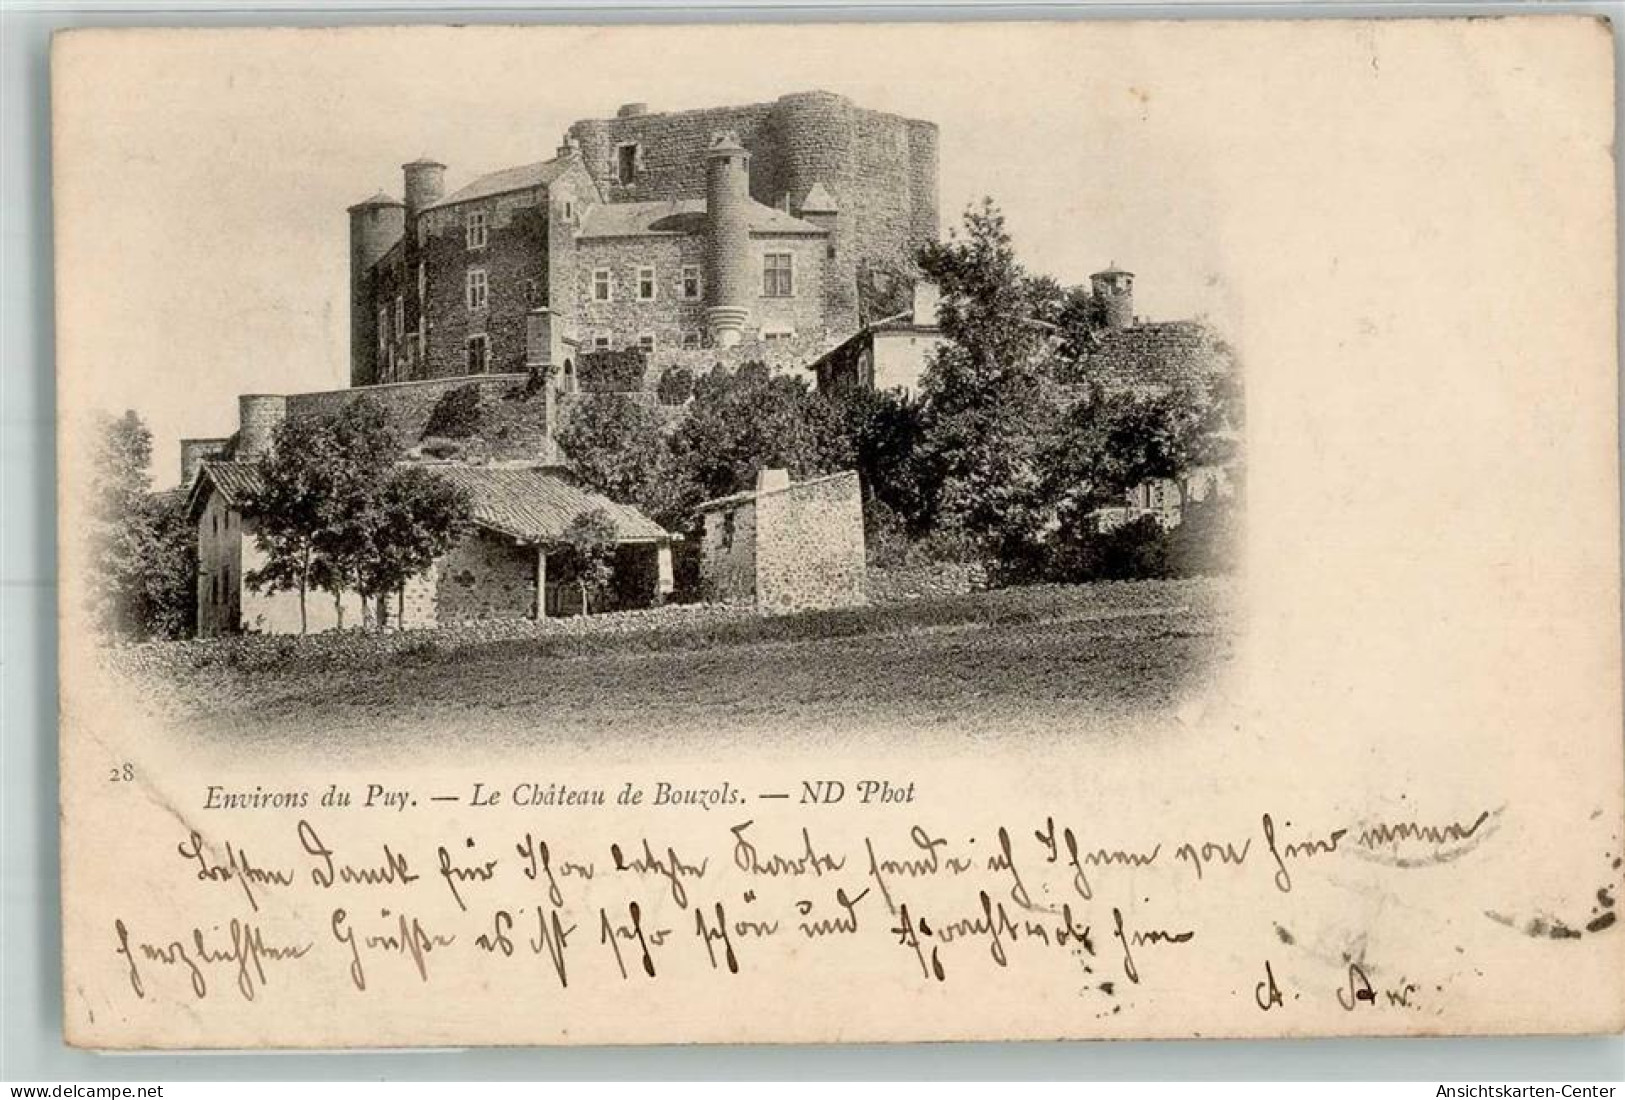 28
Environs du Puy. — Le Château de Bouzols. — ND Phot
Besten Dank für Ihre letzte Karte sende ich Ihnen von hier meine
herzlichsten Grüße es ist sehr schön und prachtvoll hier
A.
delcampe.net
Ansichtskarten-Center